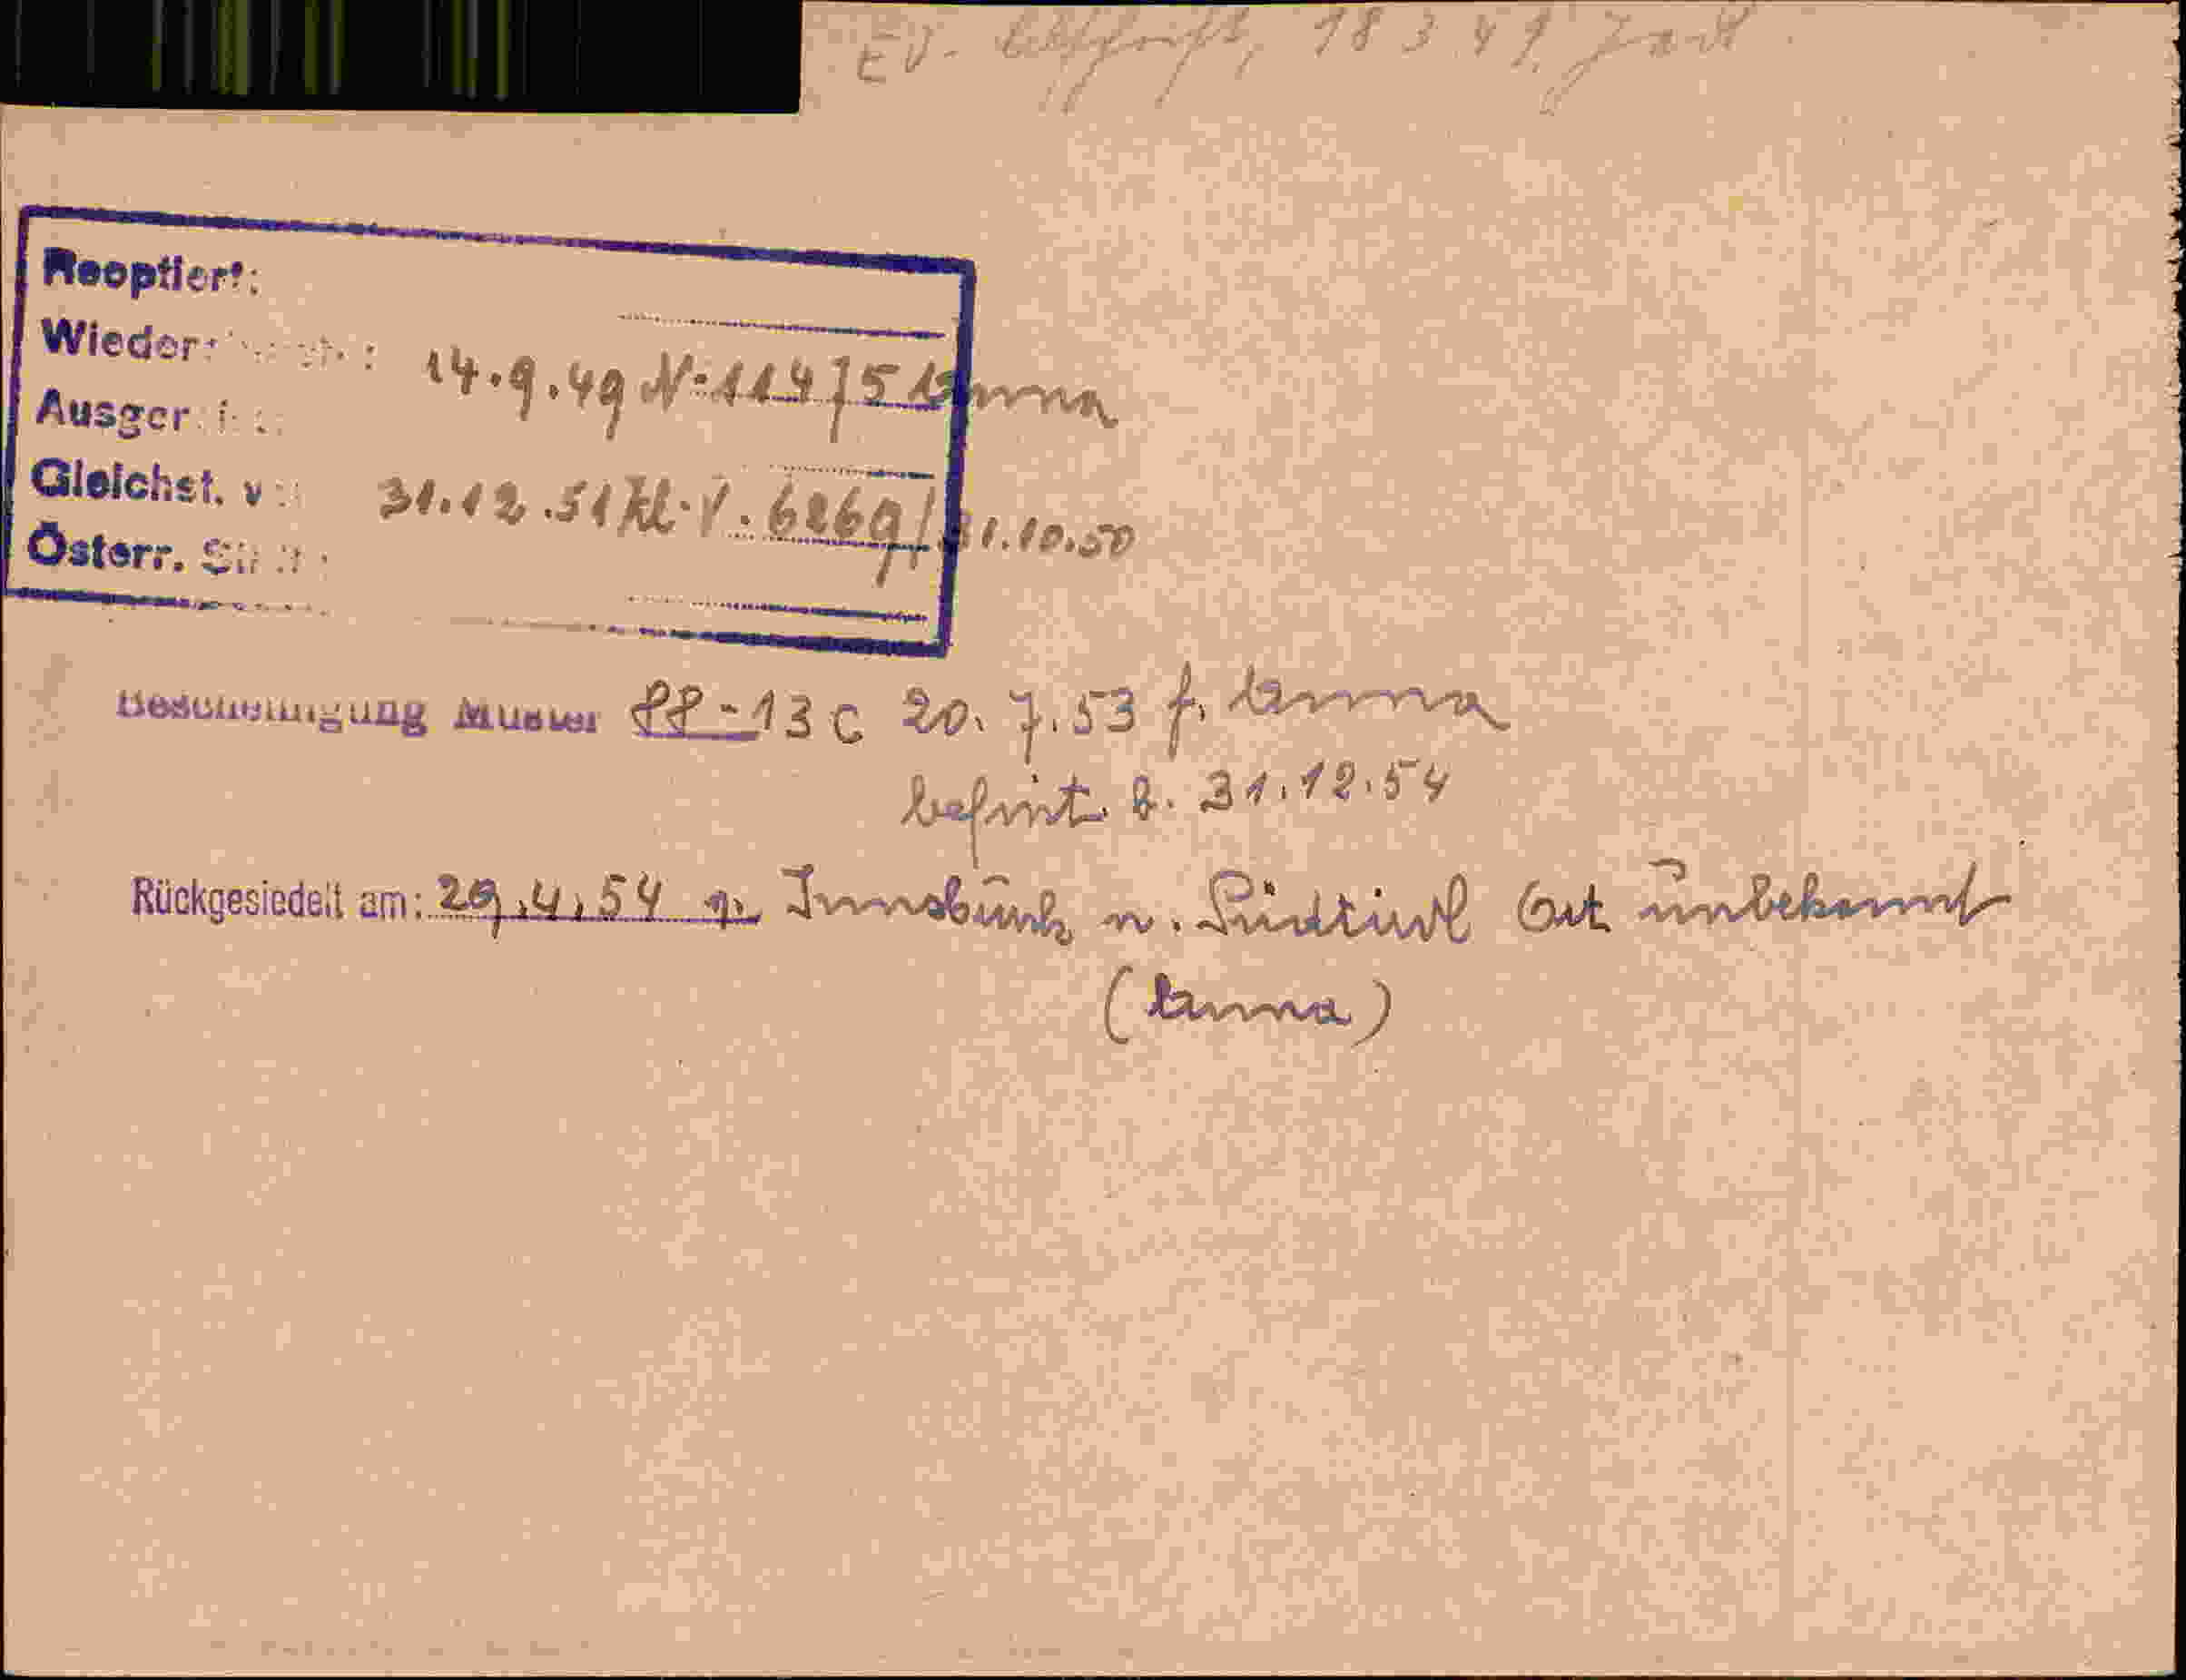 EV. 18 3 49
Reoptiert:
Wieder
14.9.49 N:11475 Anna
Ausger
Gleichst. v
31.12.51 Kl. V. 6269/31.10.50
Österr.
Bescheinigung Muster PP-13 C 20.7.53 f. Anna
befrist. b. 31.12.54
Rückgesiedelt am: 29.4.54 v. Innsbruck n. Südtirol Ort unbekannt
(Anna)